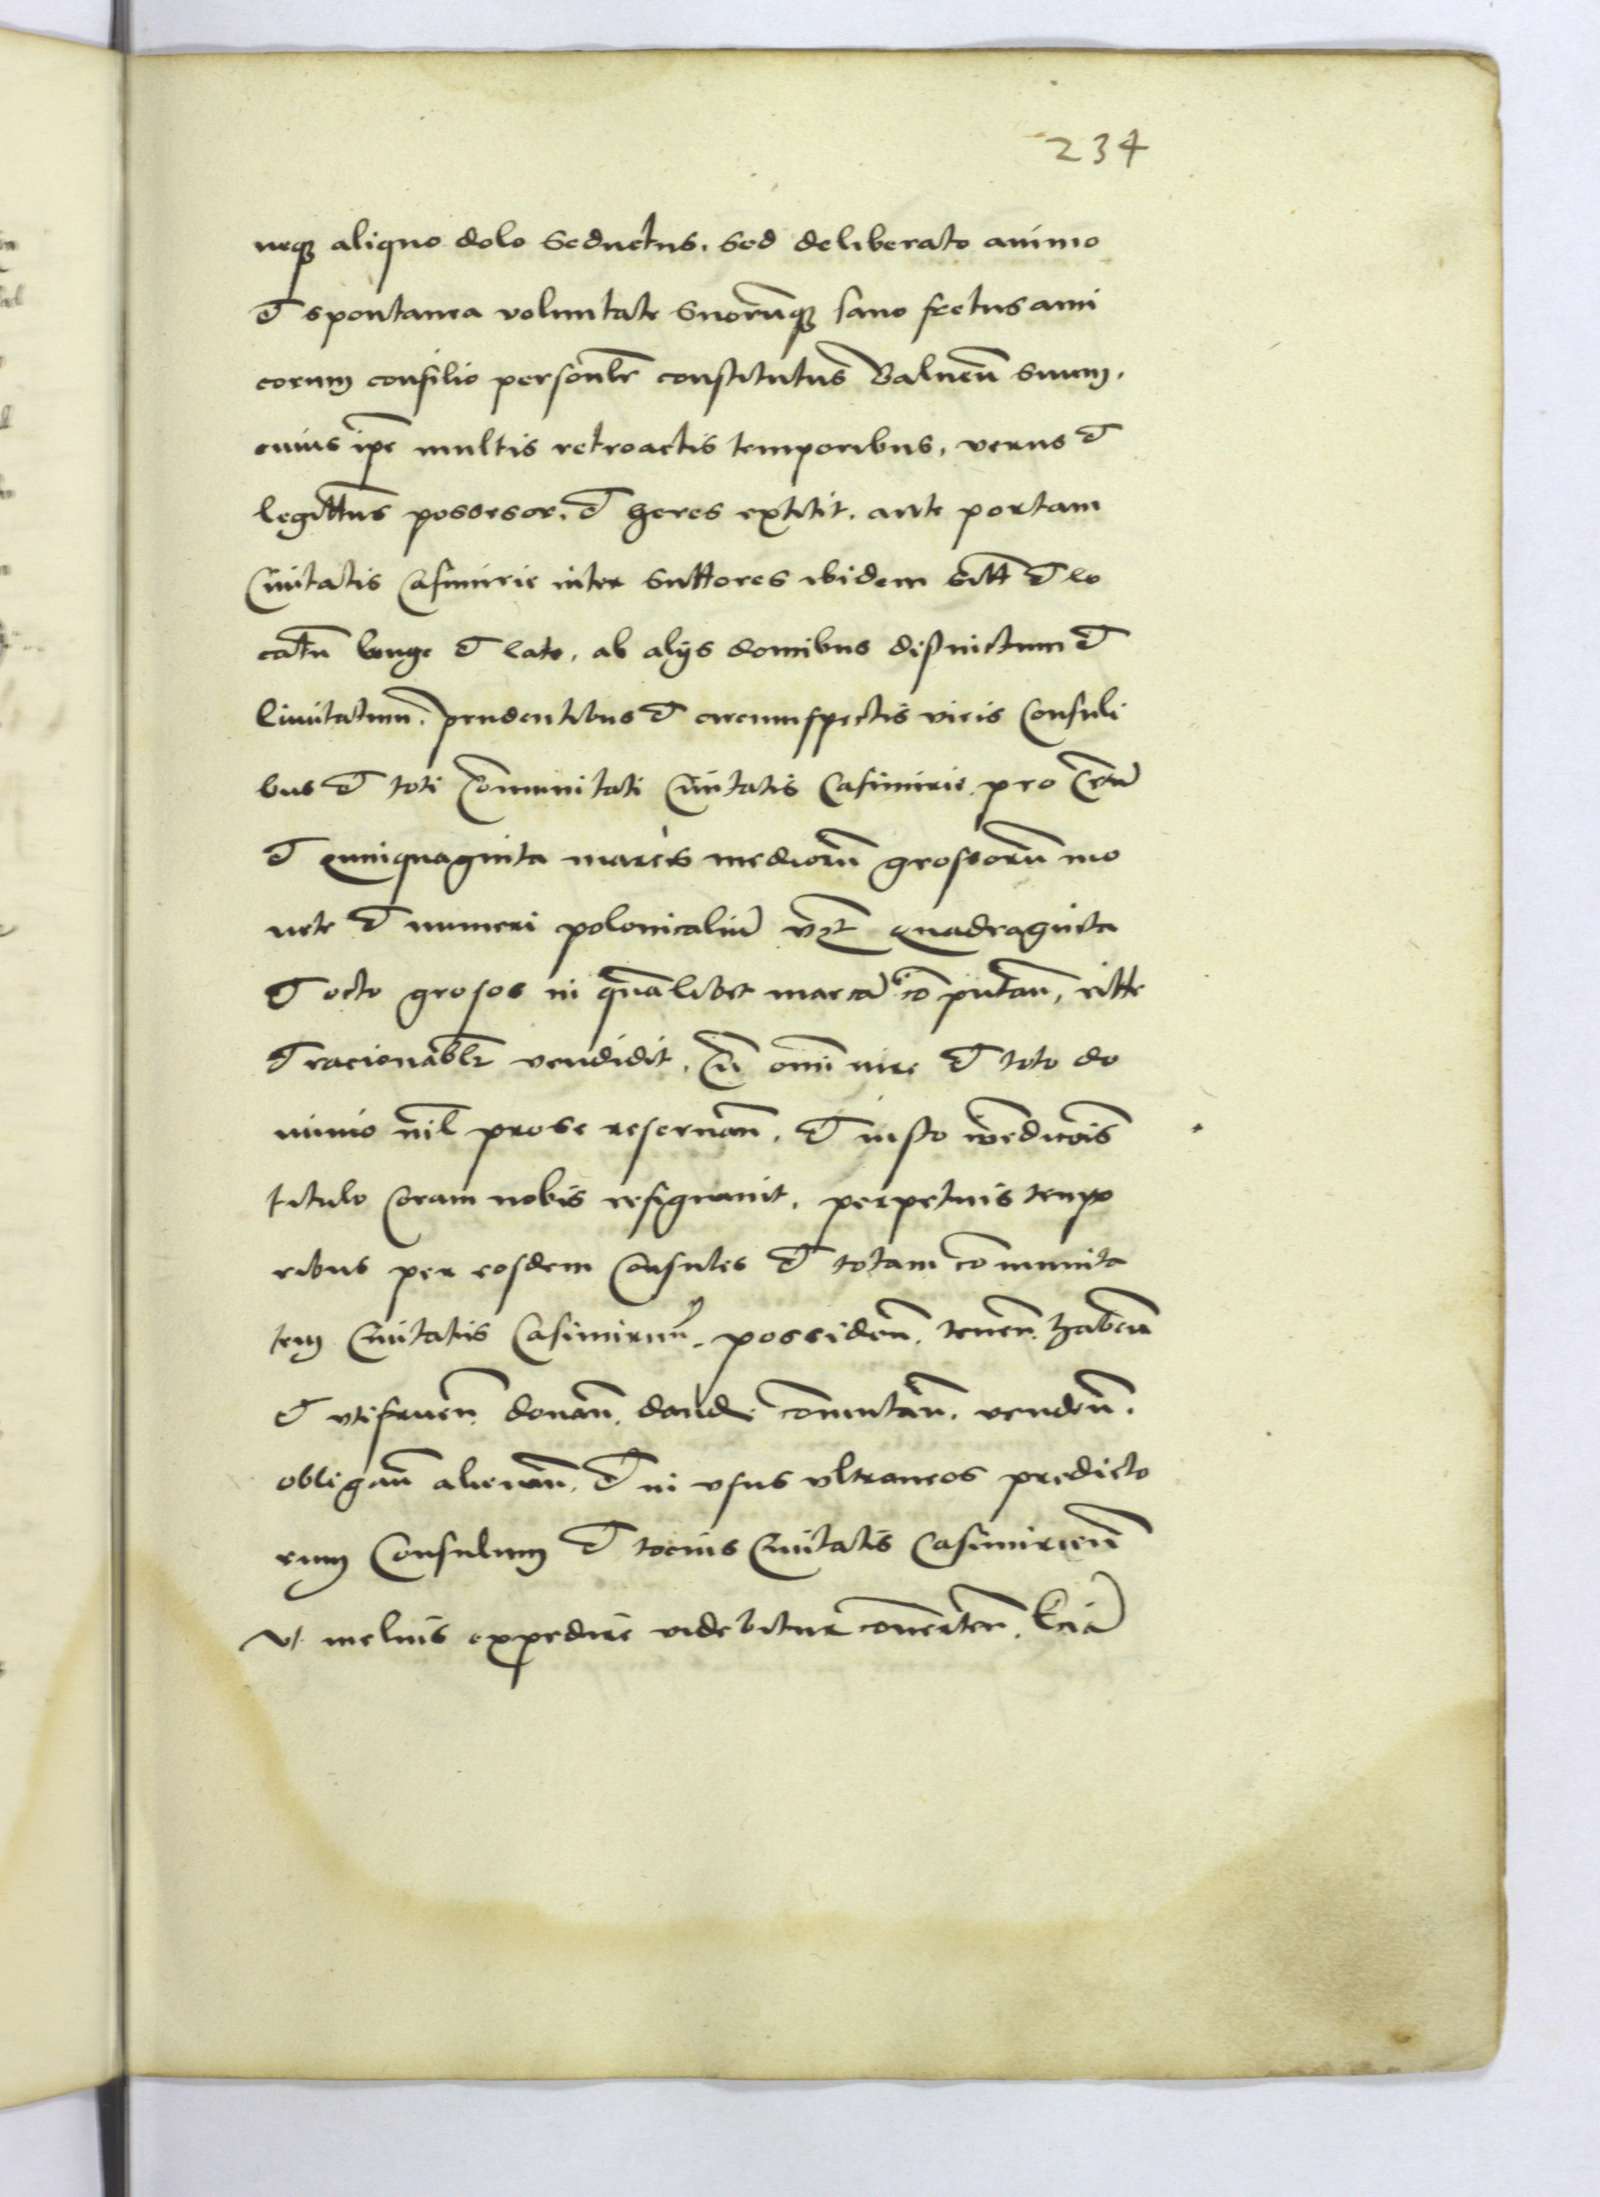 234
neqꝫ aliquo dolo seductus. sed deliberato animo
et spontanea voluntate suorūqꝫ sano fretus ami
corum consilio personlr̄ constitutus Balneū suum.
cuius ip̄e multis retroactis temporibus, verus et
legittūs possesor. et heres extitit. ante portam
Ciuitatis Casimirie inter suttores ibidem sitt̄ et lo
catū longe et late, ab alijs domibus distinctum et
limitatum̄. prudentibus et circumspectis viris Consuli
bus et toti Com̄unitati Ciuitatis Casimirie pro Centū
et quinquaginta marcis mediorū grossorū mo
nete et numeri polonicaliū vꝫt quadraginta
et octo grosos in qualibet marca cō putan̄, ritte
et racionablr̄ vendidit. Cū om̄i iure et toto do
minio nīl pro se reseruan̄. et iusto vēdicōis
titulo Coram nobis resignauit. perpetuis tempo
ribus per eosdem Consules et totam com̄unita
tem Ciuitatis Casimirien̄. possiden̄. tenen̄. haben̄
et vtifruen̄. donan̄. dandi com̄utan̄. venden̄.
obligan̄ alienan̄. et in vsus vltraneos predicto
rum Consulum et tocius Ciuitatis Casimirien̄
vt melius expedire videbitur conuerten̄.